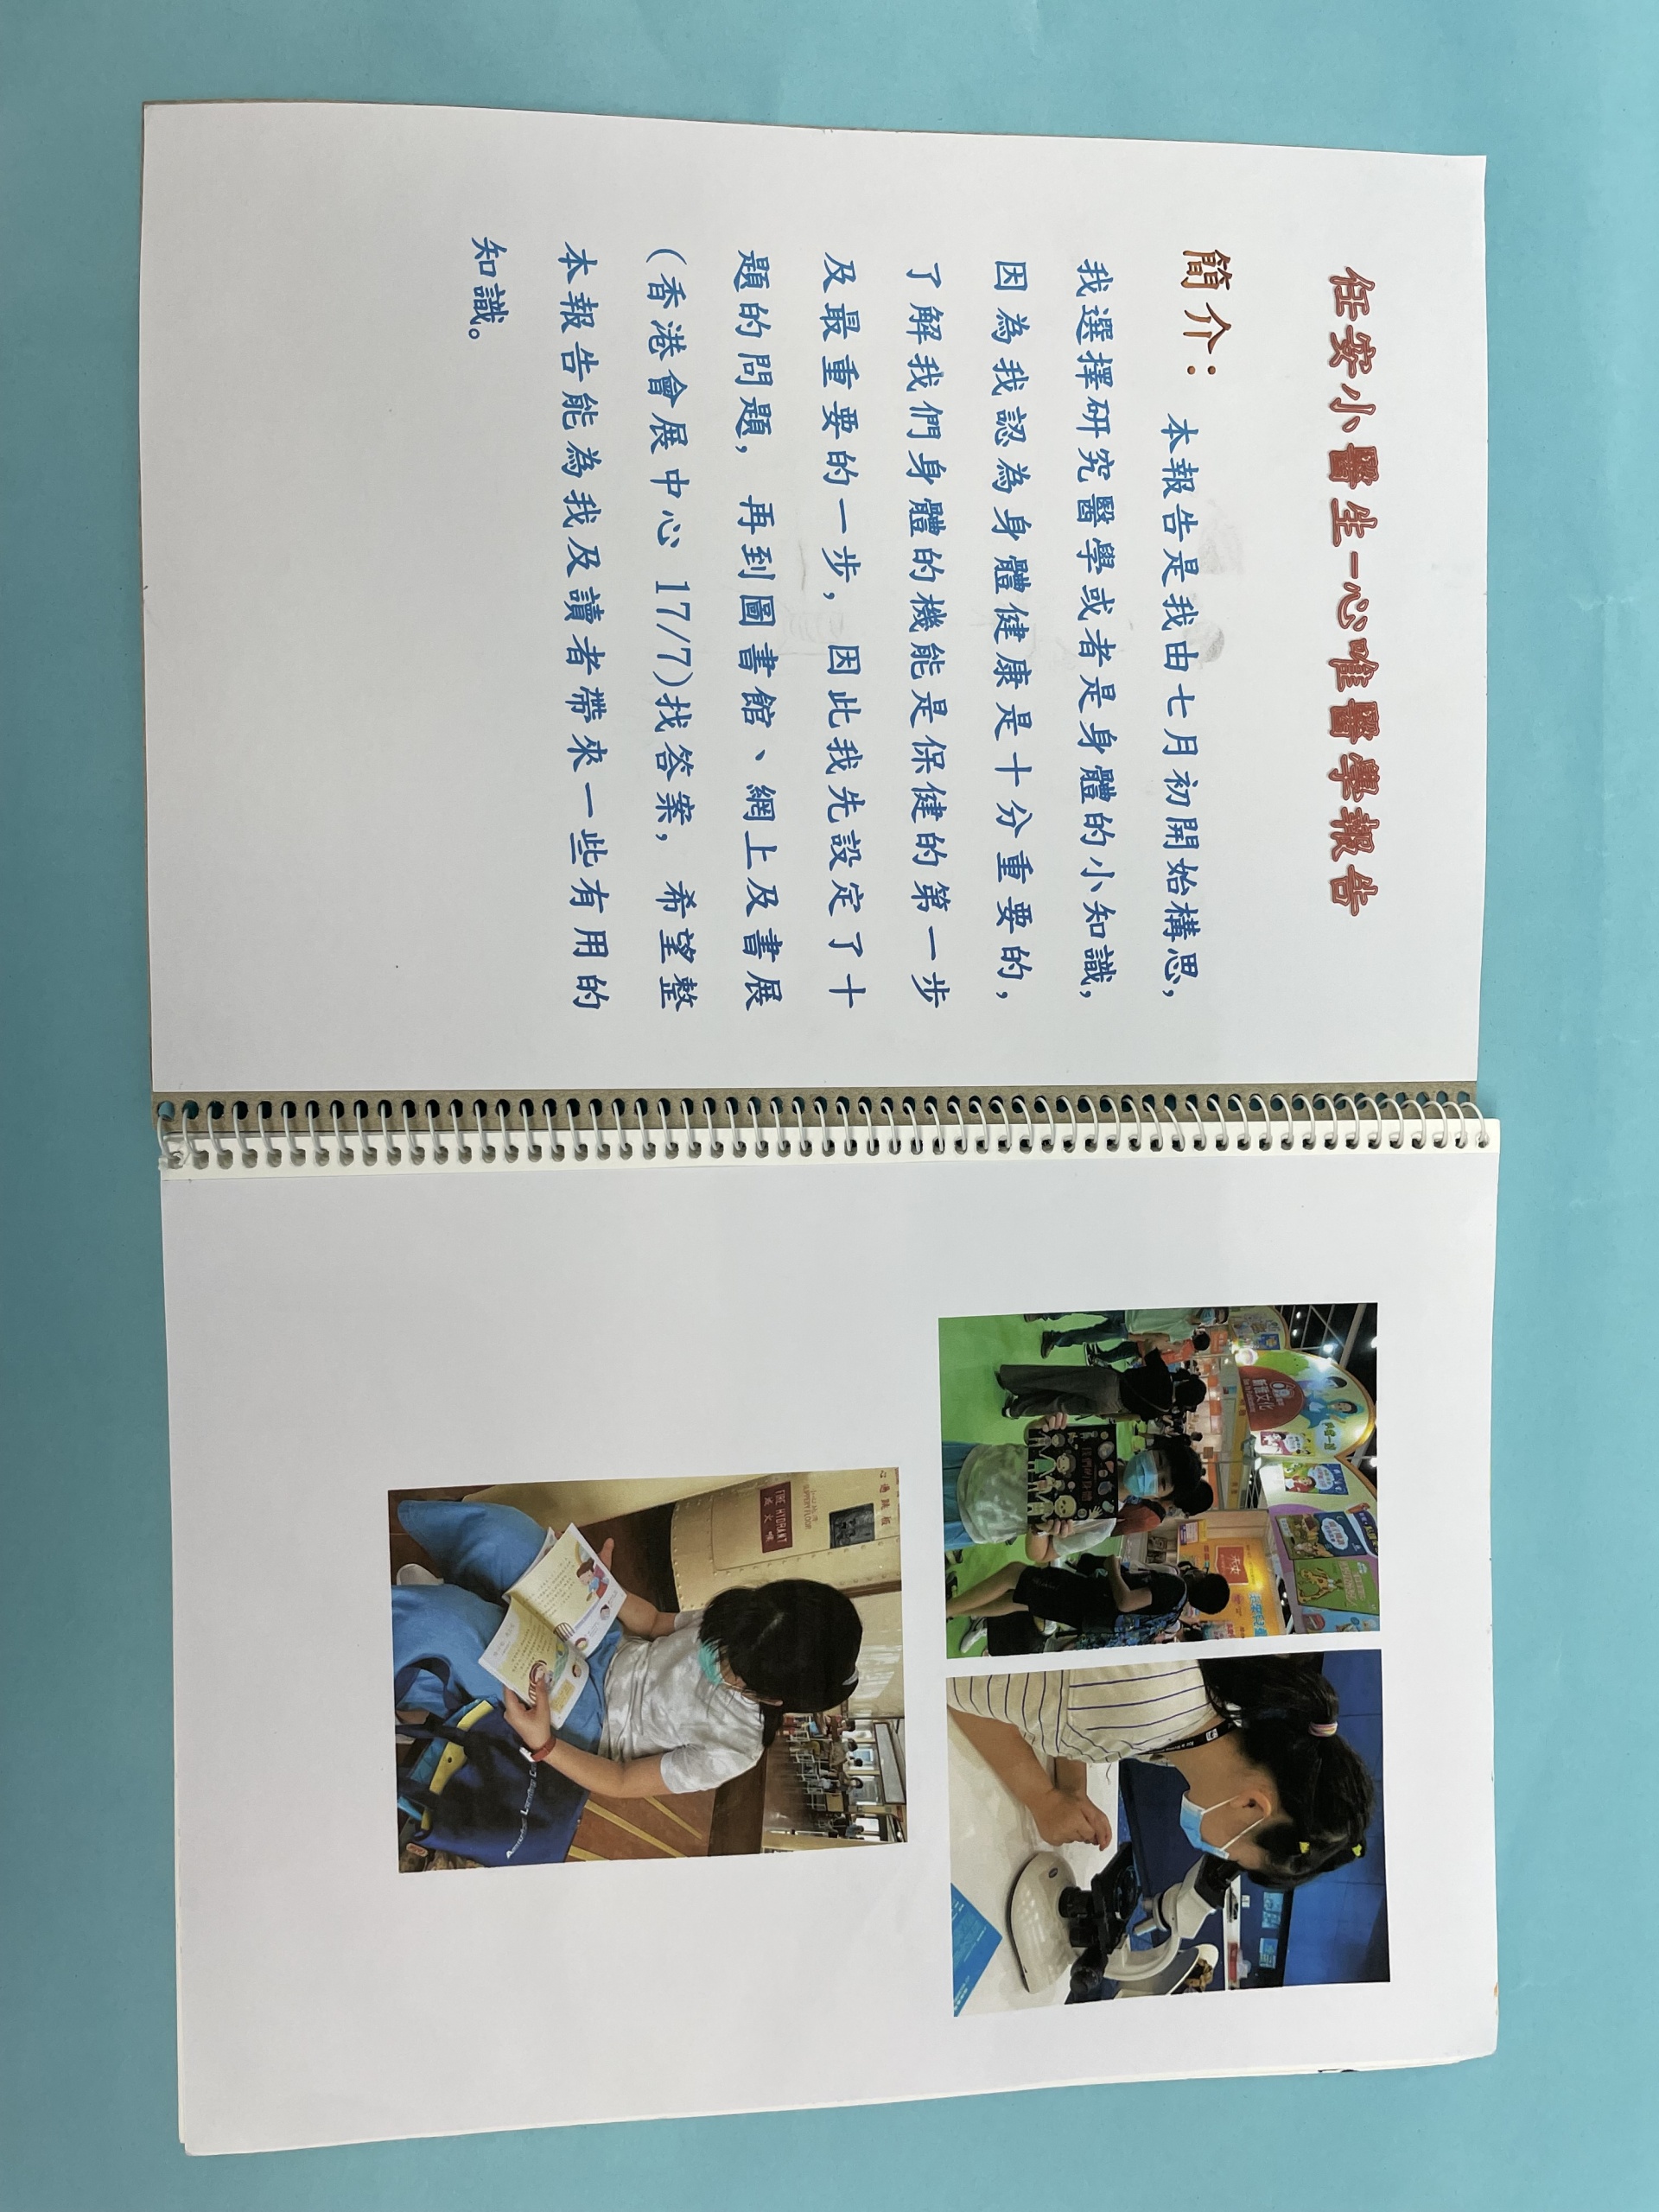 任安小醫生-心唯醫學報告
簡介： 本報告是我由七月初開始構思，
我選擇研究醫學或者是身體的小知識，
因為我認為身體健康是十分重要的，
了解我們身體的機能是保健的第一步
及最重要的一步，因此我先設定了十
題的問題，再到圖書館、網上及書展
(香港會展中心 17/7)找答案，希望整
本報告能為我及讀者帶來一些有用的
知識。
新雅文化
FIRE HYDRANT
SLIPPERY FLOOR